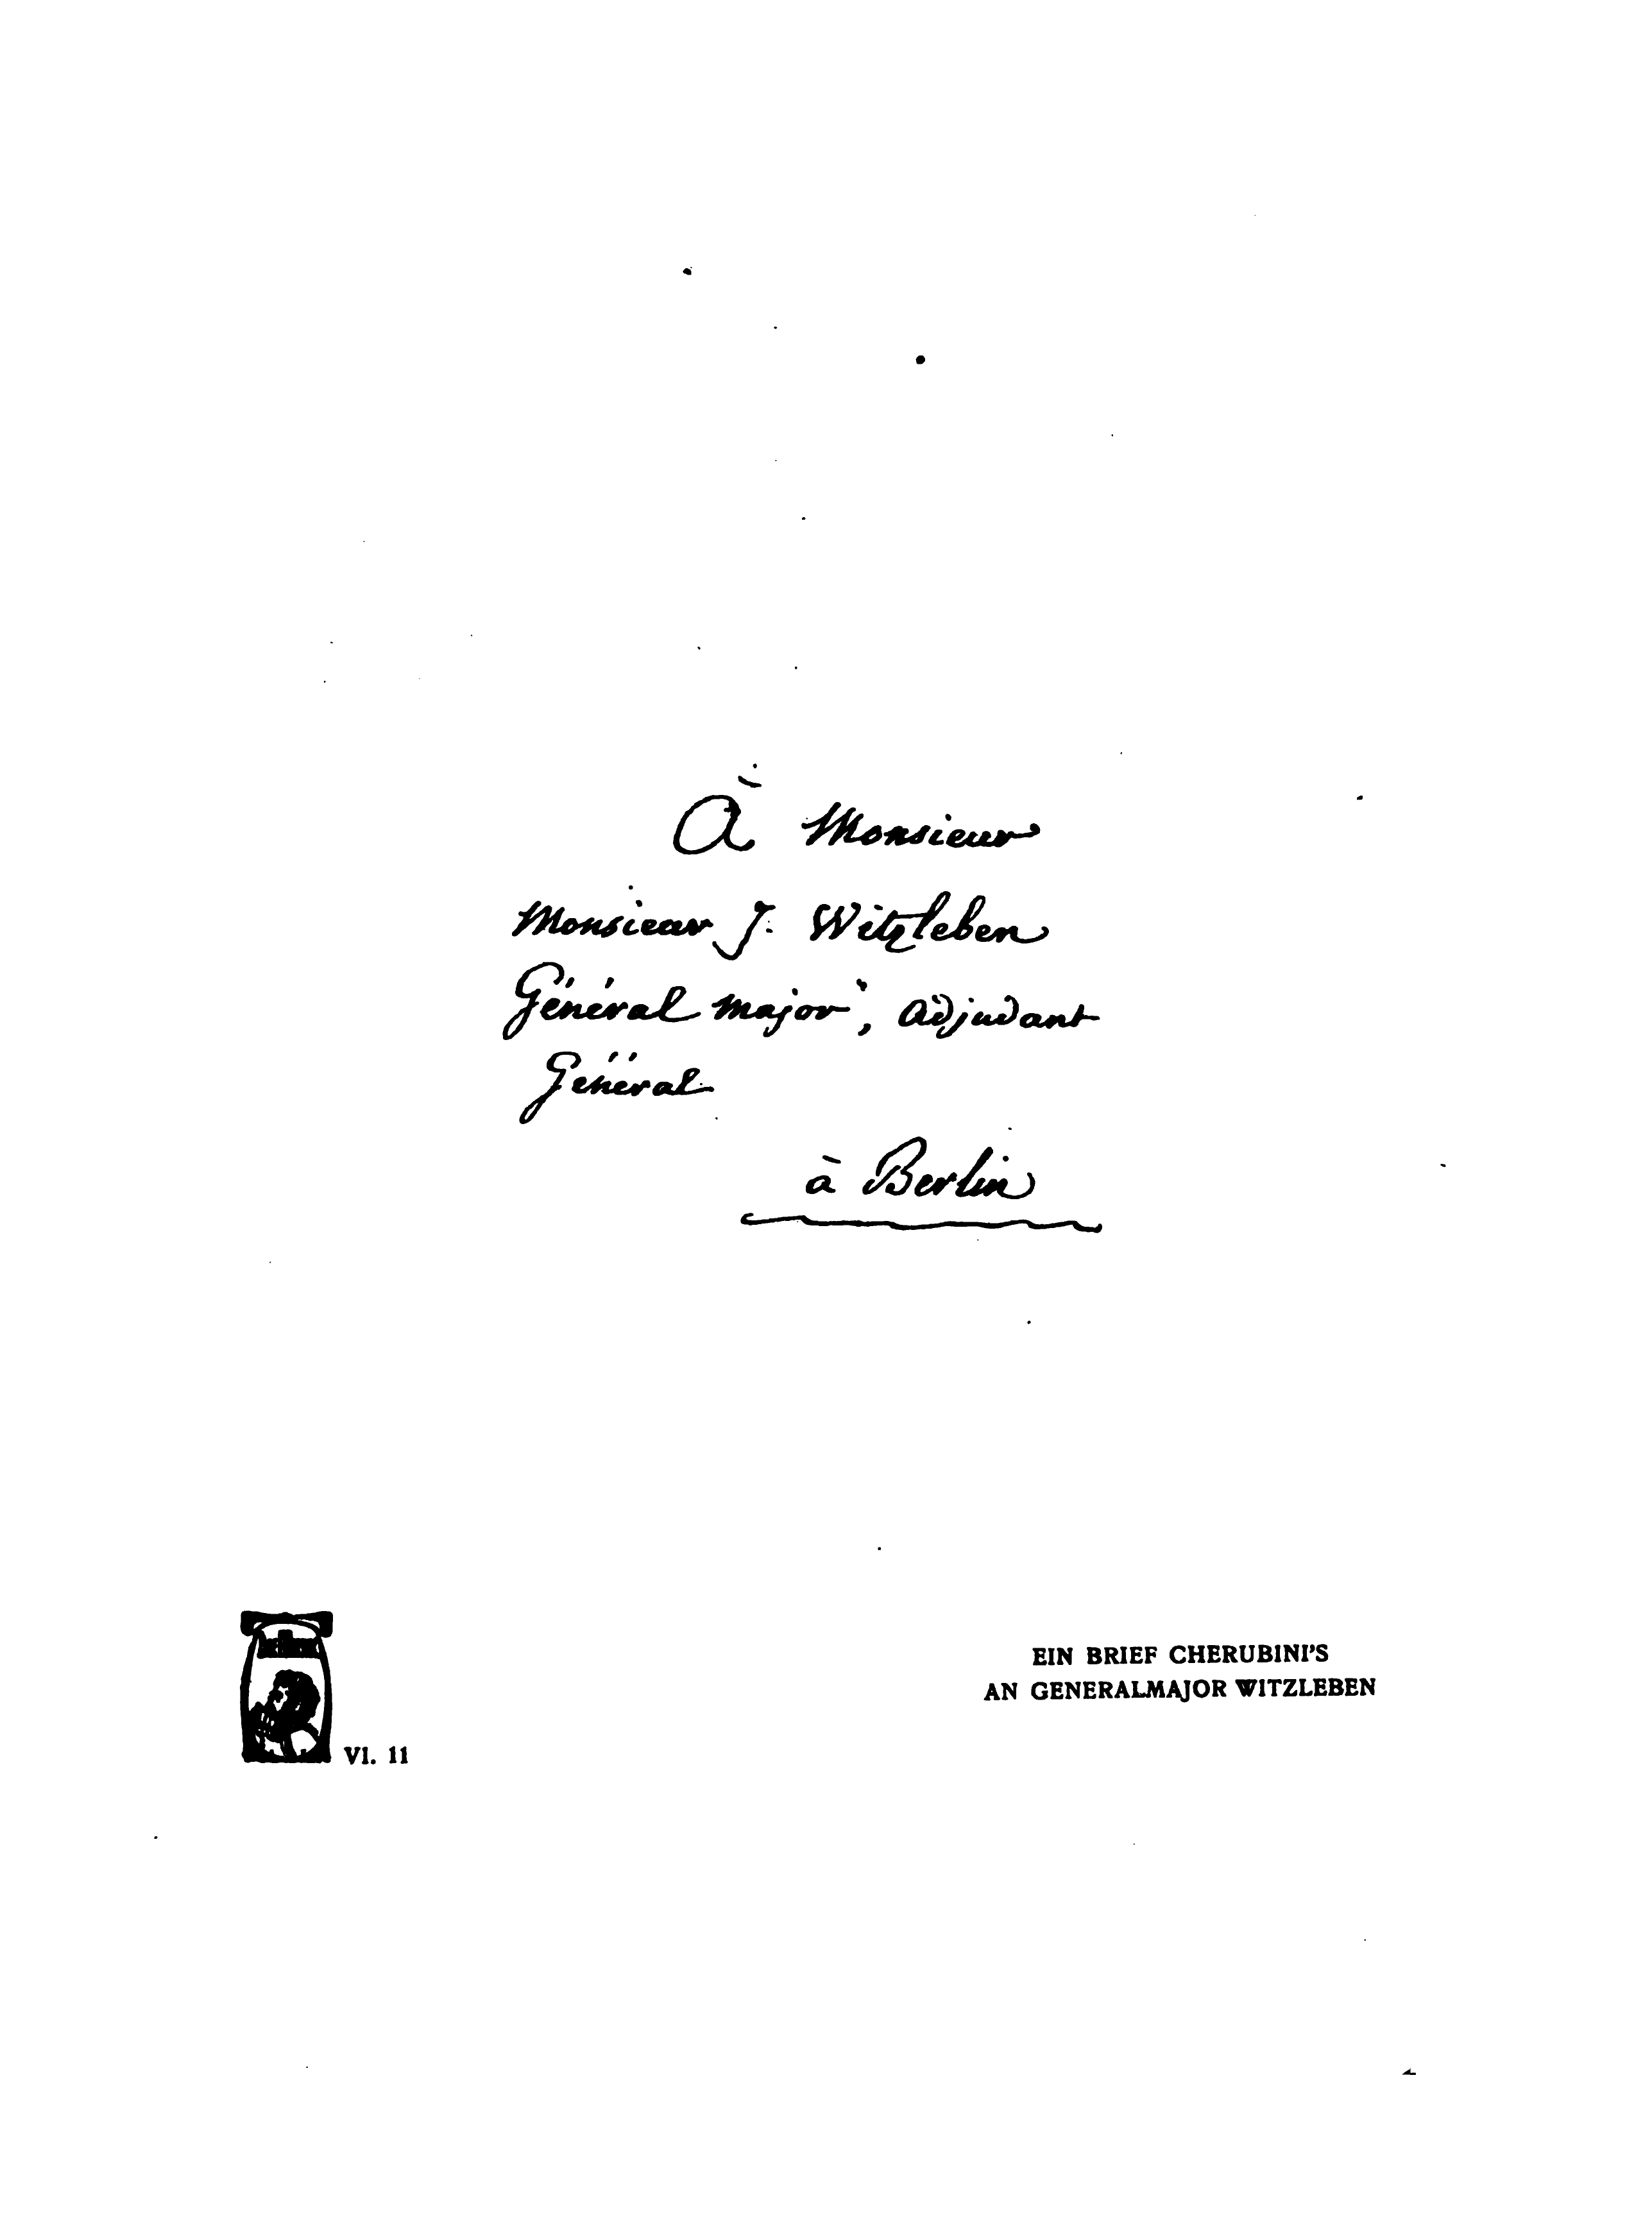 À Monsieur
Monsieur J. Witzleben
Général major, adjudant
Général
à Berlin
EIN BRIEF CHERUBINI'S
AN GENERALMAJOR WITZLEBEN
VI. 11